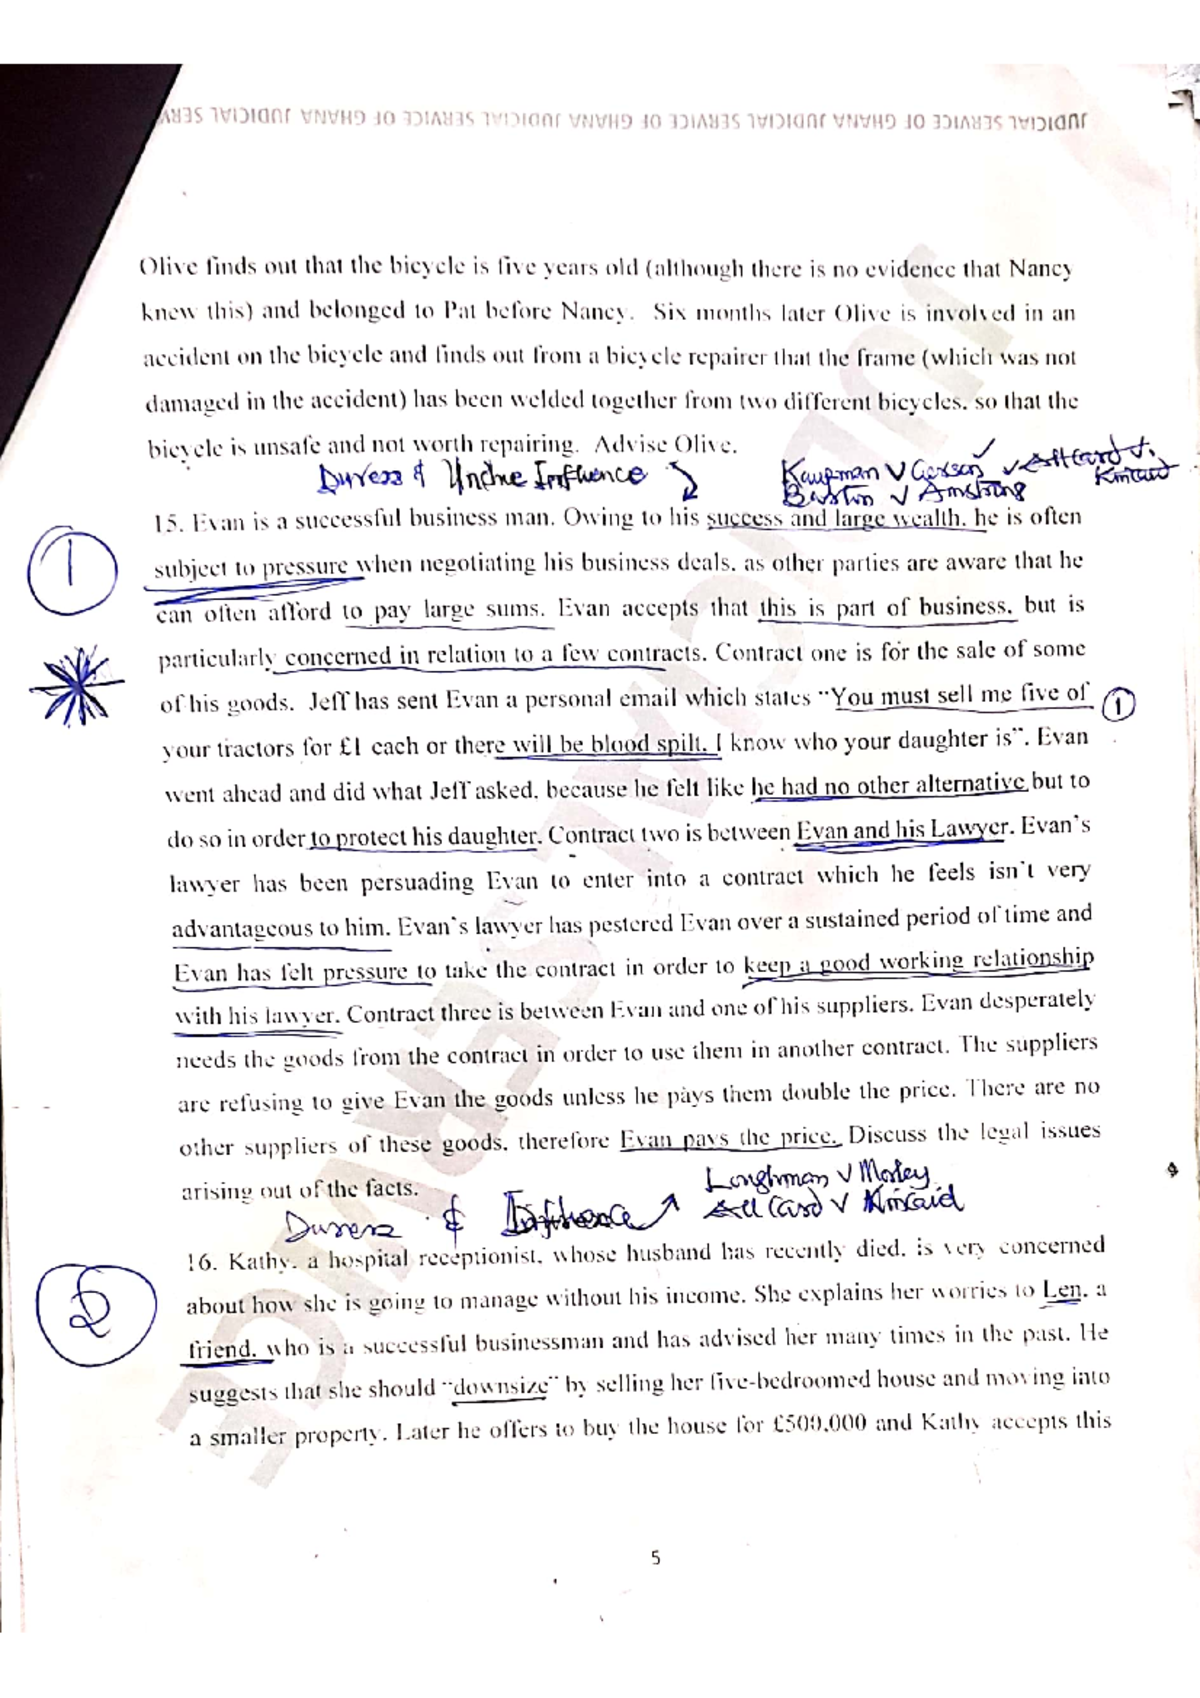 JUDICIAL SERVICE OF GHANA JUDICIAL SERVICE OF GHANA JUDICIAL SERVICE OF GHANA JUDICIAL SERV
Olive finds out that the bicycle is five years old (although there is no evidence that Nancy
knew this) and belonged to Pat before Nancy. Six months later Olive is involved in an
accident on the bicycle and finds out from a bicycle repairer that the frame (which was not
damaged in the accident) has been welded together from two different bicycles, so that the
bicycle is unsafe and not worth repairing. Advise Olive.
Duress & Undue Influence
Kaufman v Gerson v All Card v.
Kincaid
Barton v Armstrong
1
15. Evan is a successful business man. Owing to his success and large wealth, he is often
subject to pressure when negotiating his business deals, as other parties are aware that he
can often afford to pay large sums. Evan accepts that this is part of business, but is
particularly concerned in relation to a few contracts. Contract one is for the sale of some
of his goods. Jeff has sent Evan a personal email which states "You must sell me five of
1
your tractors for £1 each or there will be blood spilt. I know who your daughter is". Evan
went ahead and did what Jeff asked, because he felt like he had no other alternative but to
do so in order to protect his daughter. Contract two is between Evan and his Lawyer. Evan's
lawyer has been persuading Evan to enter into a contract which he feels isn't very
advantageous to him. Evan's lawyer has pestered Evan over a sustained period of time and
Evan has felt pressure to take the contract in order to keep a good working relationship
with his lawyer. Contract three is between Evan and one of his suppliers. Evan desperately
needs the goods from the contract in order to use them in another contract. The suppliers
are refusing to give Evan the goods unless he pays them double the price. There are no
other suppliers of these goods, therefore Evan pays the price. Discuss the legal issues
arising out of the facts.
Longhman v Mosley
Duress & Influence All Card v Kincaid
2
16. Kathy, a hospital receptionist, whose husband has recently died, is very concerned
about how she is going to manage without his income. She explains her worries to Len, a
friend, who is a successful businessman and has advised her many times in the past. He
suggests that she should "downsize" by selling her five-bedroomed house and moving into
a smaller property. Later he offers to buy the house for £500,000 and Kathy accepts this
5
JUDICIAL SERVICE